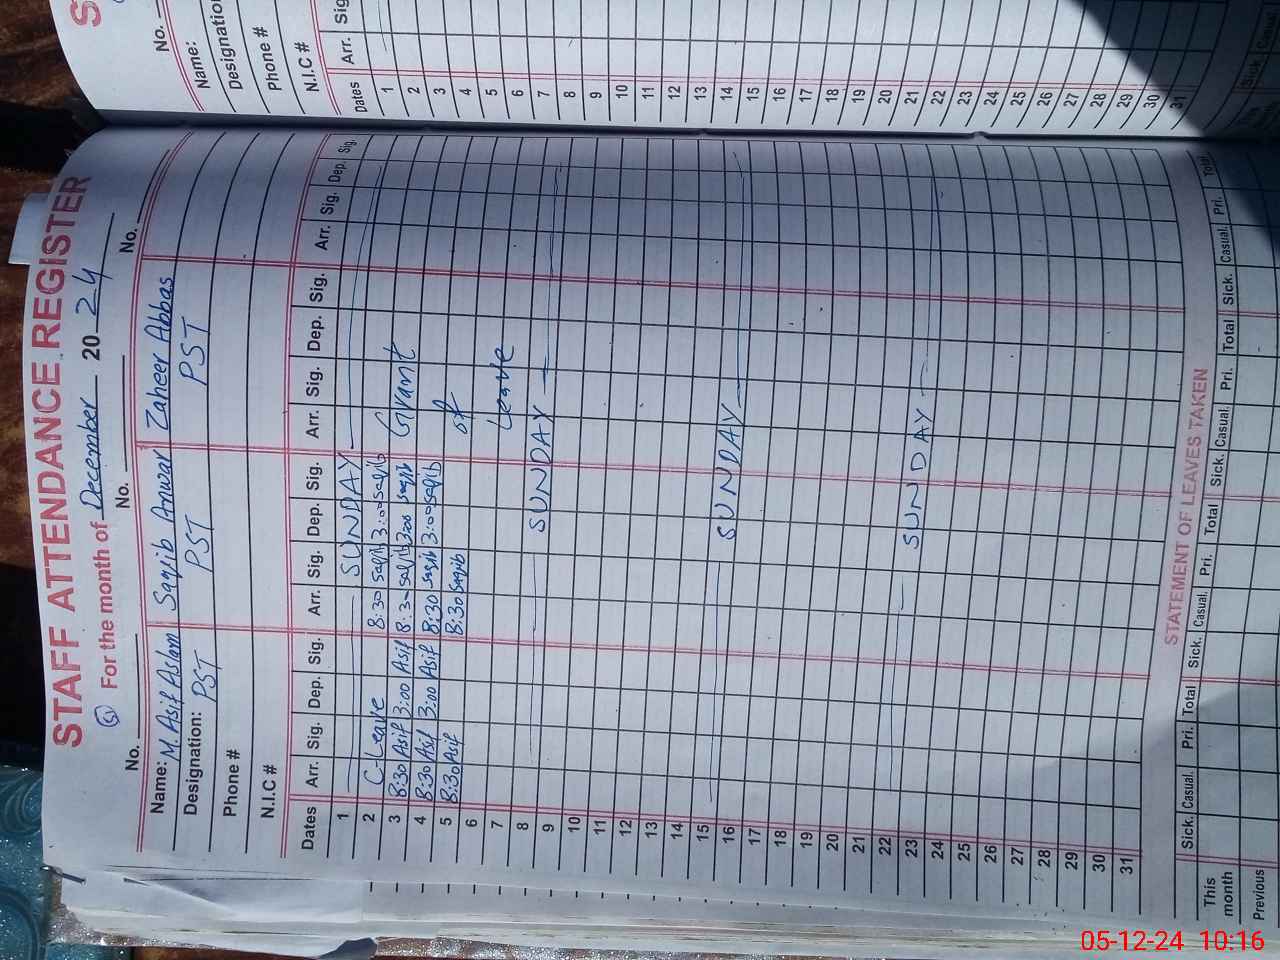 STAFF ATTENDANCE REGISTER
(5) For the month of December 2024
No. No. No. No.
Name: M. Asif Aslam Saqib Anwar Zaheer Abbas
Designation: PST PST PST
Phone #
N.I.C #
Dates Arr. Sig. Dep. Sig. Arr. Sig. Dep. Sig. Arr. Sig. Dep. Sig. Arr. Sig. Dep. Sig.
1 SUNDAY
2 C-Leave 8:30 Saqib 3:00 Saqib Grant
3 8:30 Asif 3:00 Asif 8:30 Saqib 3:00 Saqib
4 8:30 Asif 3:00 Asif 8:30 Saqib 3:00 Saqib of
5 8:30 Asif 8:30 Saqib
6 Leave
7
8 SUNDAY
9
10
11
12
13
14
15 SUNDAY
16
17
18
19
20
21
22 SUNDAY
23
24
25
26
27
28
29
30
31
STATEMENT OF LEAVES TAKEN
Sick. Casual. Pri. Total Sick. Casual. Pri. Total Sick. Casual. Pri. Total Sick. Casual. Pri. Total
This month
Previous
No.
Name:
Designation
Phone #
N.I.C #
Dates Arr. Sig
1
2
3
4
5
6
7
8
9
10
11
12
13
14
15
16
17
18
19
20
21
22
23
24
25
26
27
28
29
30
31
Sick. Casual
05-12-24 10:16